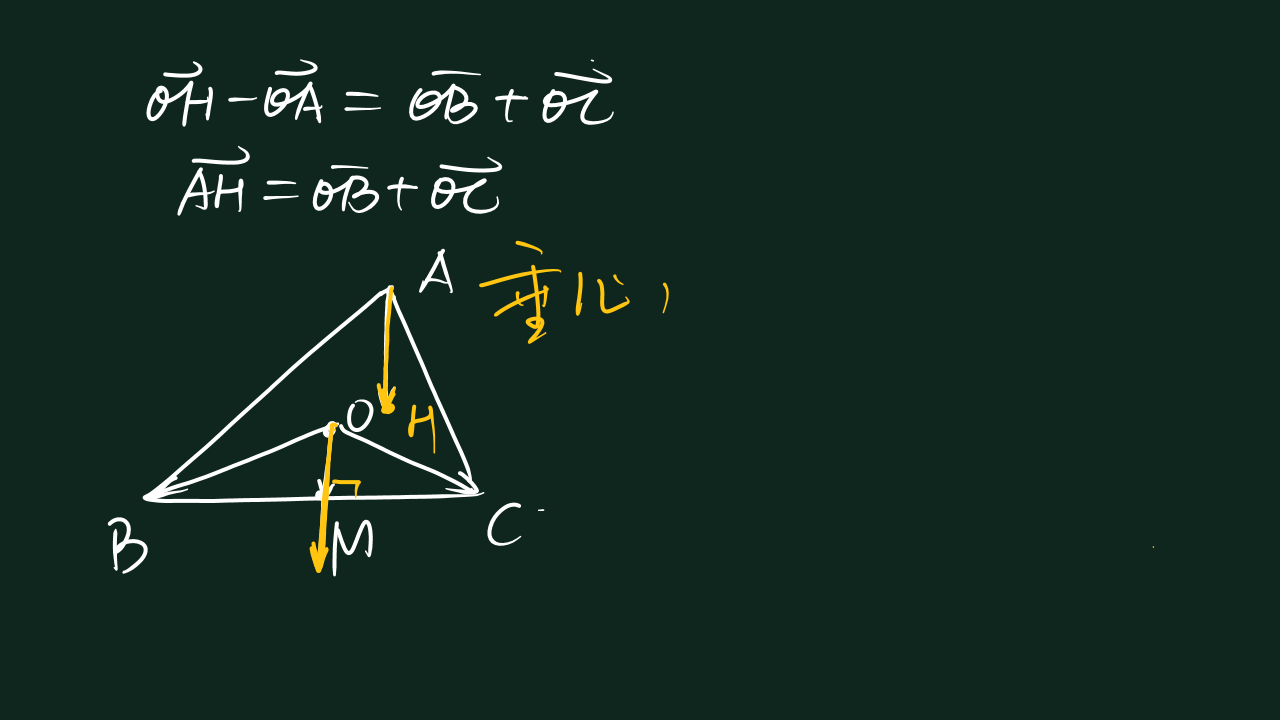 OH - OA = OB + OC
AH = OB + OC
A 垂心
O H
B M C